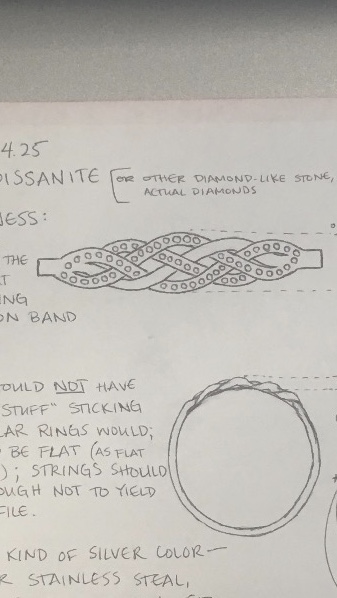 4.25
OISSANITE [OR OTHER DIAMOND-LIKE STONE,
ACTUAL DIAMONDS
NESS:
THE
AT
ING
ON BAND
OULD NOT HAVE
"STUFF" STICKING
LAR RINGS WOULD;
BE FLAT (AS FLAT
); STRINGS SHOULD
OUGH NOT TO YIELD
FILE.
KIND OF SILVER COLOR—
R STAINLESS STEAL,